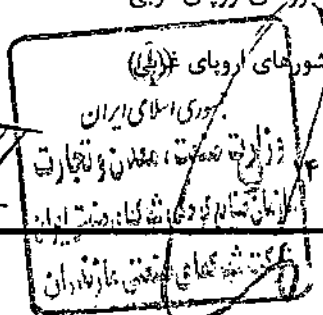 شورهای اروپای غربی
جمهوری اسلامی ایران
وزارت صنعت، معدن و تجارت
سازمان صنایع کوچک و شهرکهای صنعتی ایران
شرکت شهرکهای صنعتی مازندران